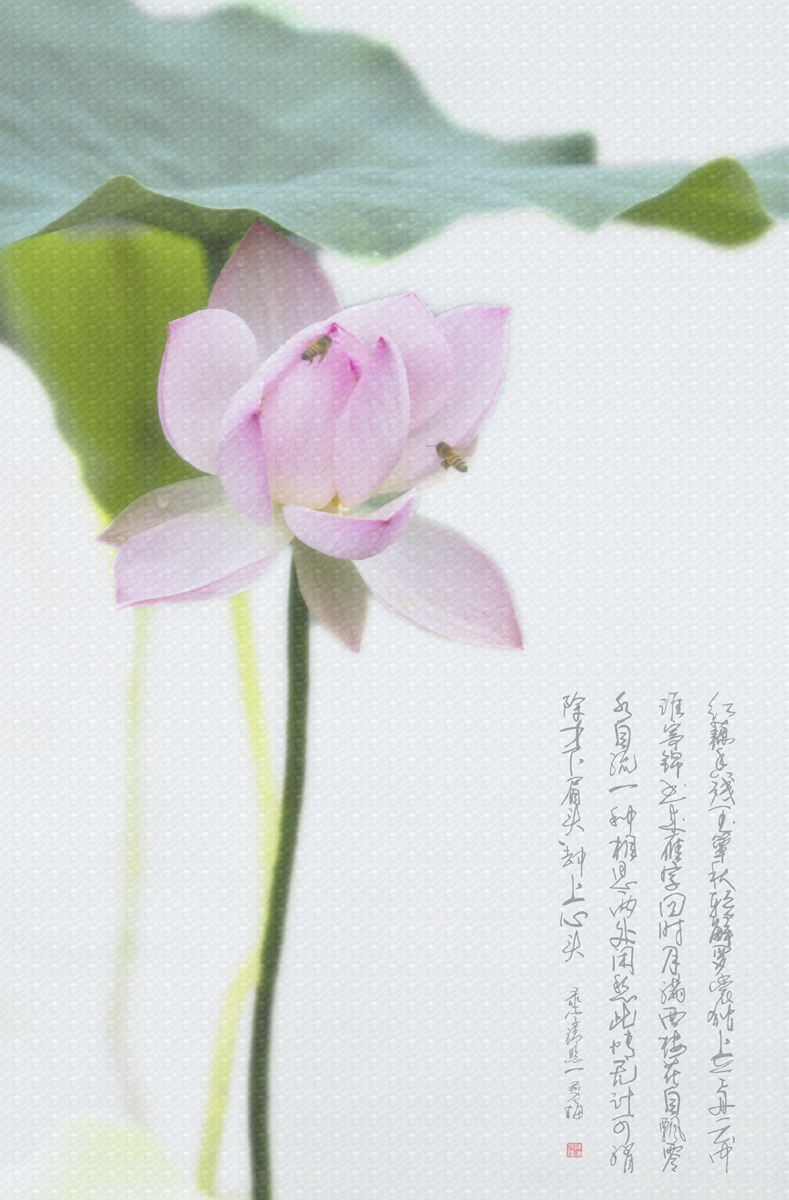 红藕香残玉簟秋轻解罗裳独上兰舟云中
谁寄锦书来雁字回时月满西楼花自飘零
水自流一种相思两处闲愁此情无计可消
除才下眉头却上心头 李清照一剪梅